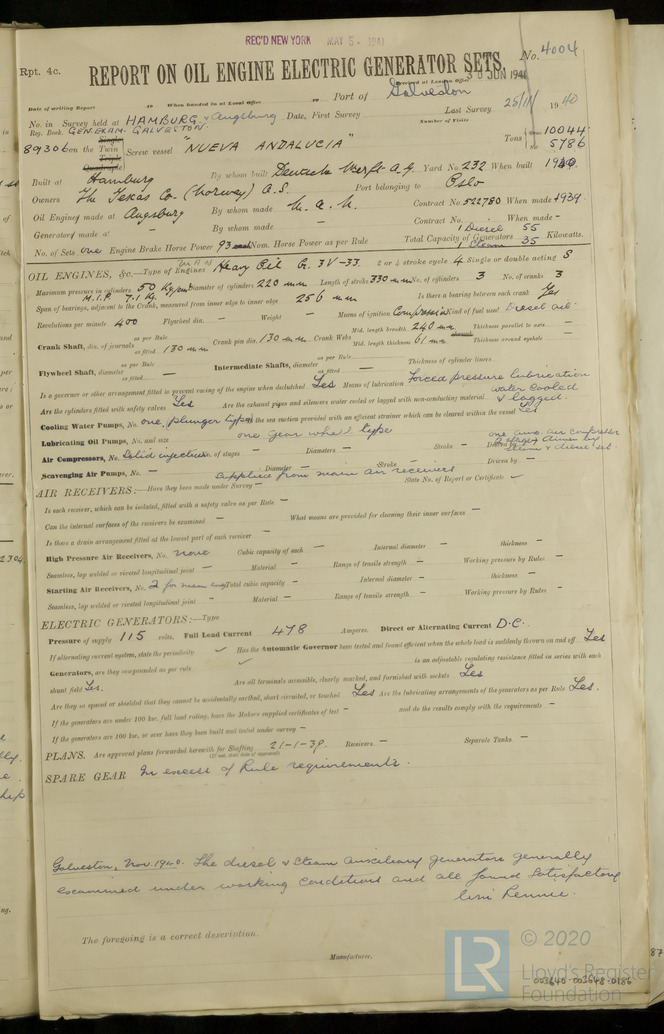 REC'D NEW YORK MAY 5 - 1941
Rpt. 4c.
No. 4004
REPORT ON OIL ENGINE ELECTRIC GENERATOR SETS.
Received at London Office 30 JUN 1941
Date of writing Report 19 When handed in at Local Office 19 Port of Galveston
No. in Survey held at HAMBURG & Augsburg Date, First Survey Last Survey 25/11/ 1940
Reg. Book. GEN. EXAM. GALVESTON Number of Visits
89306 on the Single Twin Triple Quadruple Screw vessel "NUEVA ANDALUCIA" Tons Gross 10044 Net 5786
Built at Hamburg By whom built Deutsche Werft A.G. Yard No. 232 When built 1940
Owners The Texas Co. (Norway) A.S. Port belonging to Oslo
Oil Engines made at Augsburg By whom made M.A.N. Contract No. 522780 When made 1939
Generators made at - By whom made - Contract No. When made -
No. of Sets one Engine Brake Horse Power 93 Nom. Horse Power as per Rule Total Capacity of Generators 1 Diesel 55 Steam 35 Kilowatts.
OIL ENGINES, &c.—Type of Engines MAN Heavy Oil G. 3V-33. 2 or 4 stroke cycle 4 Single or double acting S
Maximum pressure in cylinders 50 Kg/cm² Diameter of cylinders 220 mm Length of stroke 330 mm No. of cylinders 3 No. of cranks 3
M.I.P. 7.1 Kg.
Span of bearings, adjacent to the Crank, measured from inner edge to inner edge 256 mm Is there a bearing between each crank Yes
Revolutions per minute 400 Flywheel dia. - Weight - Means of ignition Compression Kind of fuel used Diesel oil
Crank Shaft, dia. of journals as per Rule as fitted 130 mm Crank pin dia. 130 mm Crank Webs Mid. length breadth 240 mm Mid. length thickness 61 mm Thickness parallel to axis - Thickness around eyehole -
Flywheel Shaft, diameter as per Rule - as fitted - Intermediate Shafts, diameter as per Rule - as fitted - Thickness of cylinder liners
Is a governor or other arrangement fitted to prevent racing of the engine when declutched Yes Means of lubrication forced pressure lubrication
Are the cylinders fitted with safety valves Yes Are the exhaust pipes and silencers water cooled or lagged with non-conducting material water cooled & lagged.
Cooling Water Pumps, No. one, plunger type Is the sea suction provided with an efficient strainer which can be cleared within the vessel Yes
Lubricating Oil Pumps, No. and size one gear wheel type
Air Compressors, No. Solid injection No. of stages - Diameters - Stroke - Driven by one aux. air compressor 2 stage driven by steam & diesel set.
Scavenging Air Pumps, No. - Diameter - Stroke - Driven by -
AIR RECEIVERS:—Have they been made under Survey Supplied from main air receivers State No. of Report or Certificate
Is each receiver, which can be isolated, fitted with a safety valve as per Rule -
Can the internal surfaces of the receivers be examined - What means are provided for cleaning their inner surfaces -
Is there a drain arrangement fitted at the lowest part of each receiver -
High Pressure Air Receivers, No. none Cubic capacity of each - Internal diameter - thickness -
Seamless, lap welded or riveted longitudinal joint - Material - Range of tensile strength - Working pressure by Rules -
Starting Air Receivers, No. 2 for main eng Total cubic capacity - Internal diameter - thickness -
Seamless, lap welded or riveted longitudinal joint - Material - Range of tensile strength - Working pressure by Rules -
ELECTRIC GENERATORS:—Type
Pressure of supply 115 volts. Full Load Current 478 Amperes. Direct or Alternating Current D.C.
If alternating current system, state the periodicity Has the Automatic Governor been tested and found efficient when the whole load is suddenly thrown on and off Yes
Generators, are they compounded as per rule is an adjustable regulating resistance fitted in series with each
shunt field Yes. Are all terminals accessible, clearly marked, and furnished with sockets Yes
Are they so spaced or shielded that they cannot be accidentally earthed, short circuited, or touched Yes Are the lubricating arrangements of the generators as per Rule Yes.
If the generators are under 100 kw. full load rating, have the Makers supplied certificates of test - and do the results comply with the requirements -
If the generators are 100 kw. or over have they been built and tested under survey -
PLANS. Are approved plans forwarded herewith for Shafting 21-1-39. Receivers. - Separate Tanks. -
SPARE GEAR In excess of Rule requirements.
Galveston, Nov. 1940. The diesel & steam auxiliary generators generally
examined under working conditions and all found satisfactory
The foregoing is a correct description.
Manufacturer.
LR © 2020
Lloyd's Register
Foundation
003640-003648-0186